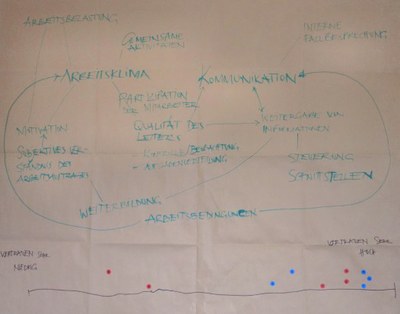 ARBEITSBELASTUNG
GEMEINSAME
AKTIVITÄTEN
INTERNE
ARBEITSKLIMA
KOMMUNIKATION
PARTIZIPATION
DER MITARBEITER
QUALITÄT DES
LEITERS
WEITERGABE VON
INFORMATIONEN
MOTIVATION
SUBJEKTIVES VER-
STÄNDNIS DES
ARBEITSAUFTRAGES
STEUERUNG
SCHNITTSTELLEN
WEITERBILDUNG
ARBEITSBEDINGUNGEN
VERTRAUEN SEHR
NIEDRIG
VERTRAUEN SEHR
HOCH